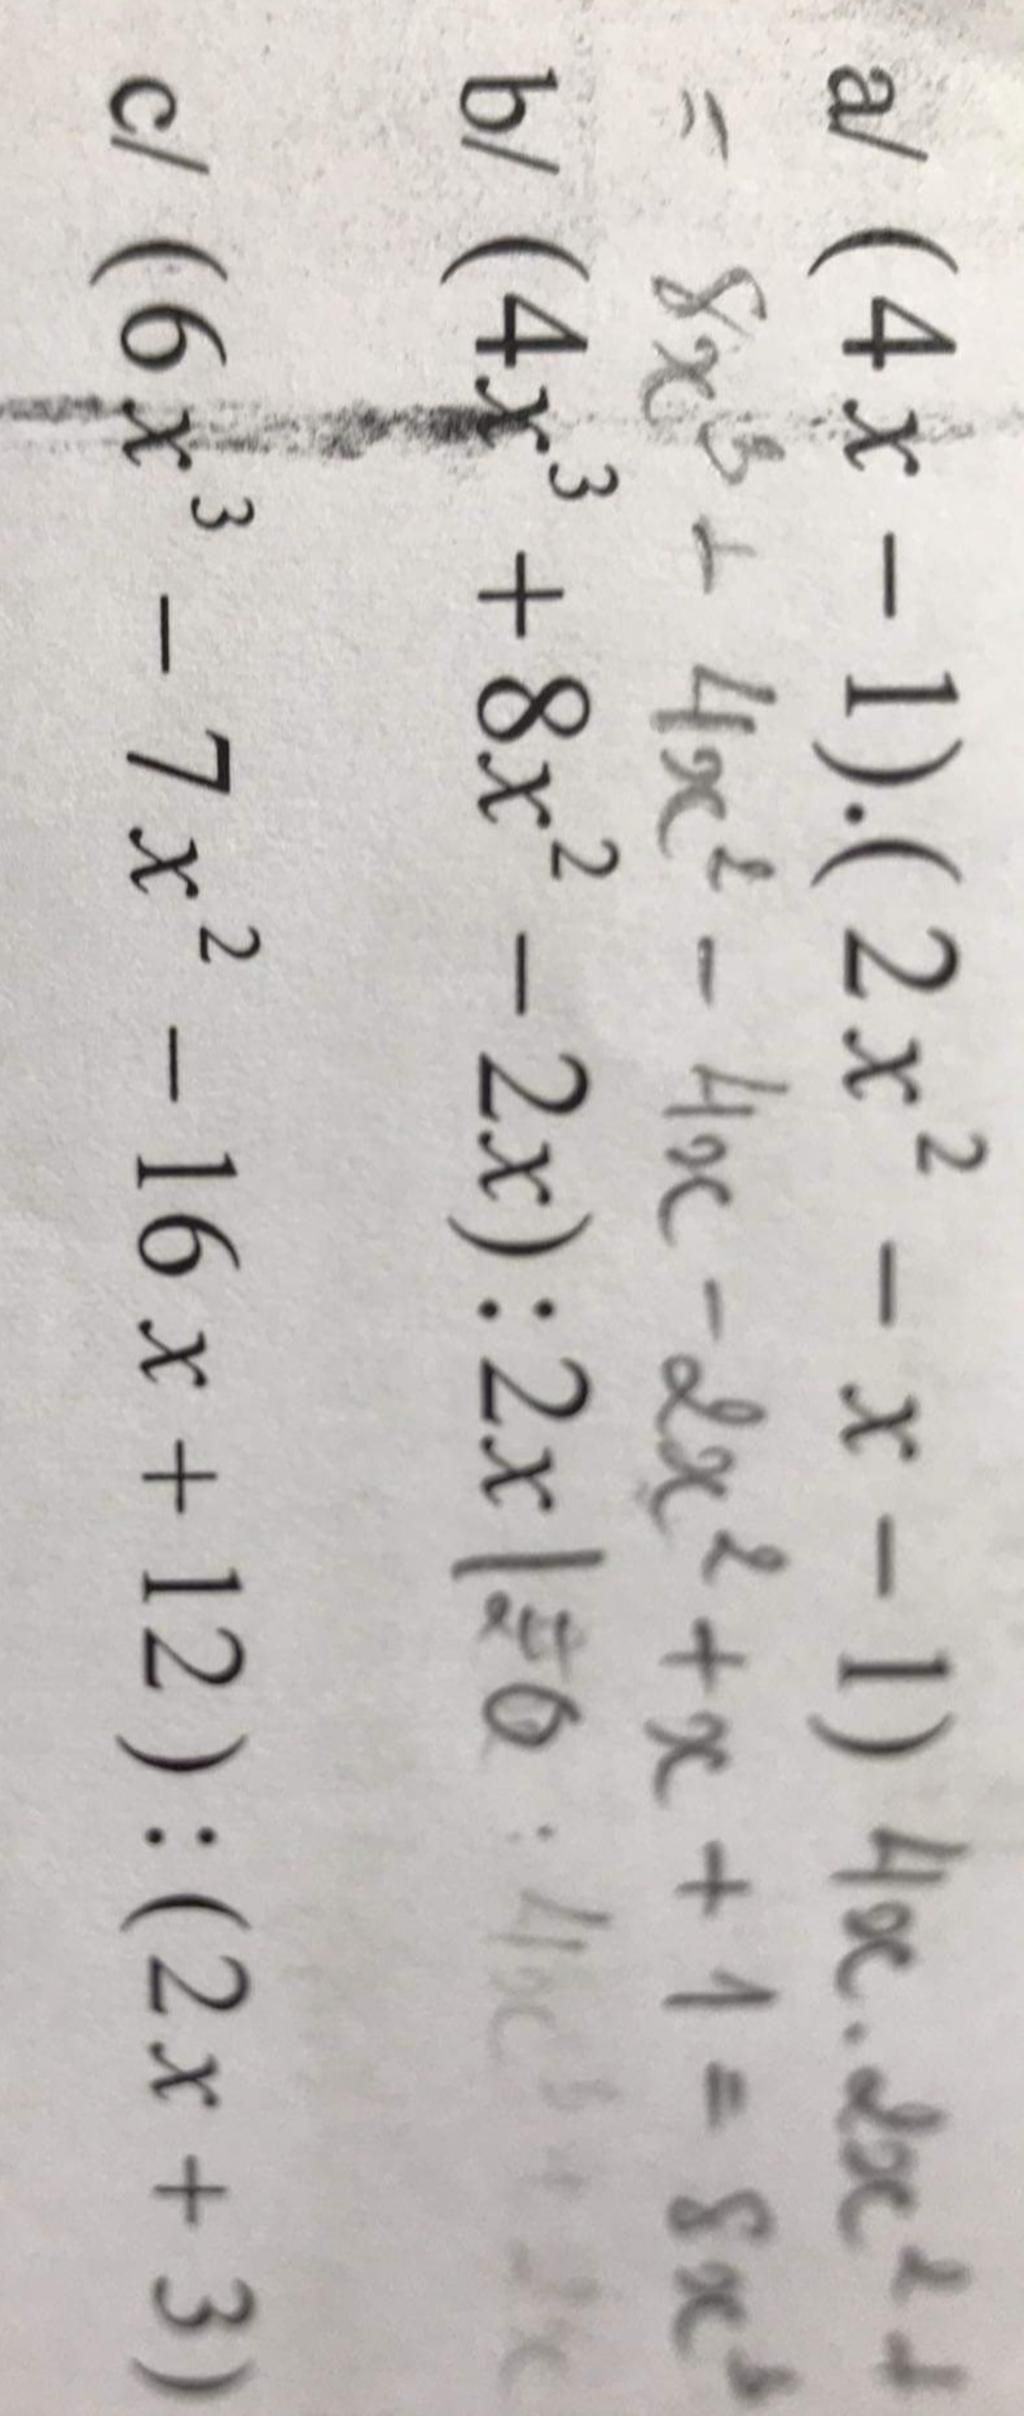 a/ (4x − 1).(2x² − x − 1) 4x.2x²
= 8x³ + 4x² − 4x − 2x² + x + 1 = 8x³
b/ (4x³ + 8x² − 2x) : 2x
c/ (6x³ − 7x² − 16x + 12) : (2x + 3)